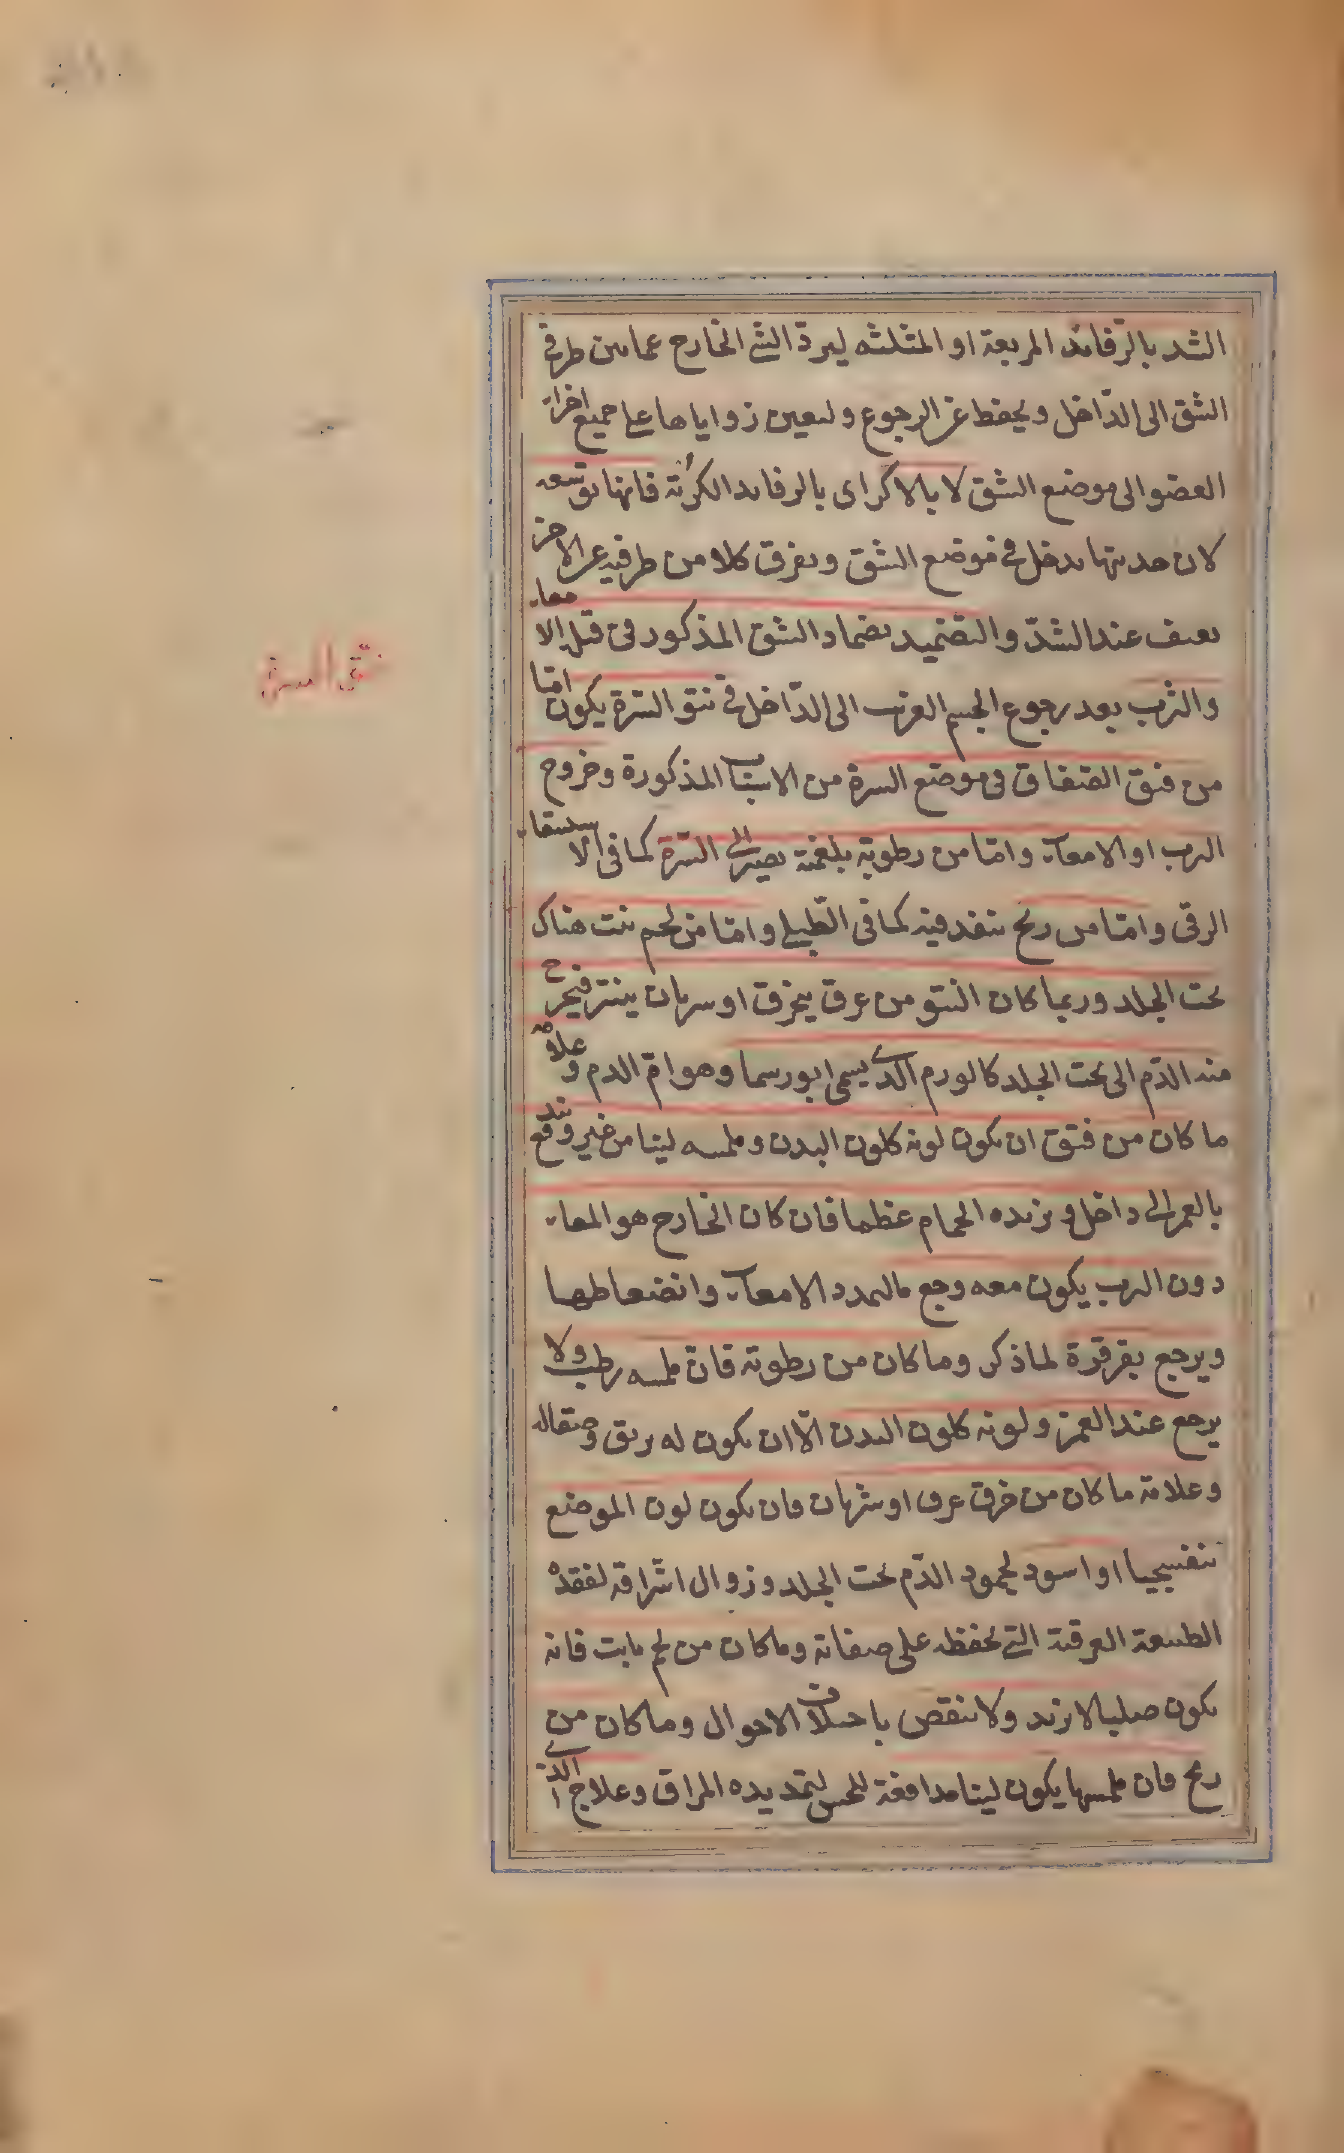 الشد بالرفائد المربعة او المثلثه ليردّ الشئ الخارج عما بين طرفى
الشق الى الداخل ويحفظ عن الرجوع وليعين زواياها على جميع اجزاء
العضو الى موضع الشق لا بالاكر اى بالرفائد الكرّية فانها توسعه
لان حدبتها يدخل فى موضع الشق ويفرق كلا من طرفيه عن الاخر
بعنف عند الشدّ والتضميد بضماد الشق المذكور فى فتق الامعاء
والثرب بعد رجوع الجسم الغريب الى الداخل فى نتو السرة يكون امّا
من فتق الصفاق فى موضع السرة من الاسباب المذكورة وخروج
الثرب او الامعاء وامّا من رطوبة بلغمية يصير الى السّرة كما فى الاستسقاء
الزقى وامّا من ريح ينفد فيه كما فى الطبلى وامّا من لحم ينبت هناك
تحت الجلد وربما كان النتو من عرق ينخرق او شريان ينبتر فيخرج
منه الدّم الى تحت الجلد كالورم الذى يسمى ابورسما وهو امّ الدم وعلامة
ما كان من فتق ان يكون لونه كلون البدن وملمسه لينا من غير وجع ويندفع
بالغمر الى داخل ويزيده الحمام عظما فان كان الخارج هو المعاء
دون الثرب يكون معه وجع ما لتمدد الامعاء وانضغاطها
ويرجع بقرقرة لما ذكر وما كان من رطوبة فان ملمسه رطب ولا
يرجع عند الغمز ولونه كلون البدن الّا ان يكون له بريق وصقاله
وعلامة ما كان من خرق عرق او شريان فان يكون لون الموضع
بنفسجيا او اسود لجمود الدّم تحت الجلد وزوال اشراقه لفقده
الطبيعة العرقية التى تحفظه على صفاته وما كان من لحم نابت فانه
يكون صلبا لا يزيد ولا ينقص باختلاف الاحوال وما كان من
ريح فان ملمسها يكون لينا مدافعة للحس لتمديده المراق وعلاج الذى
نتو السرة